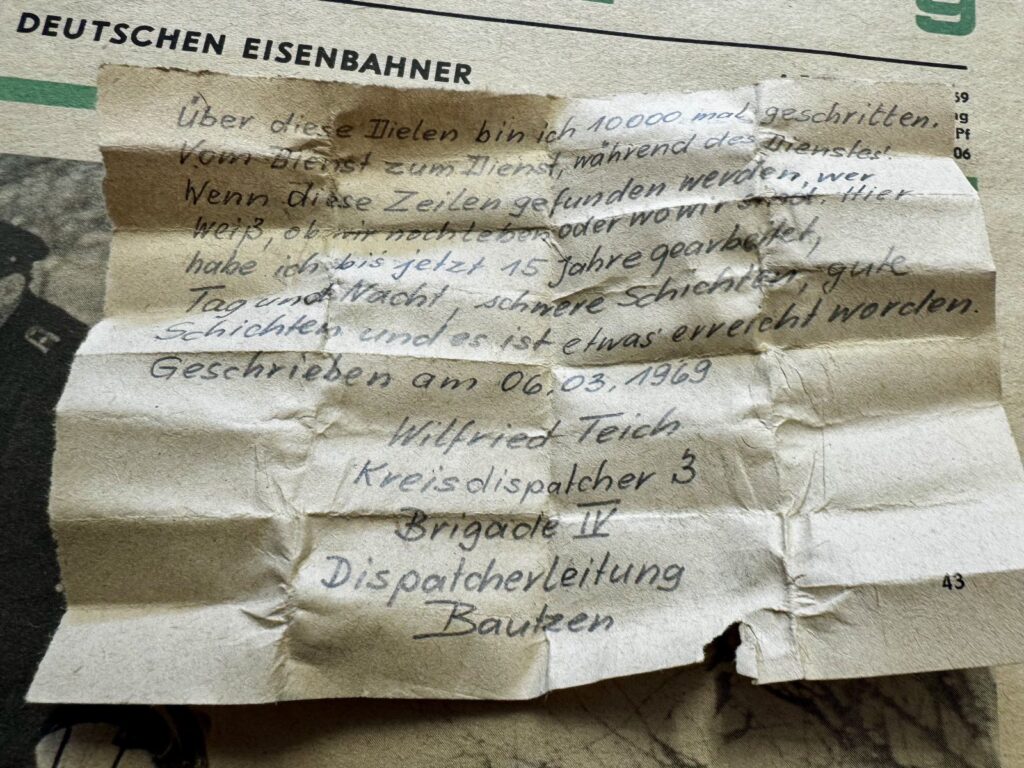 g
DEUTSCHEN EISENBAHNER
59
Pf
06
Über diese Dielen bin ich 10000 mal geschritten.
Vom Dienst zum Dienst, während des Dienstes!
Wenn diese Zeilen gefunden werden, wer
weiß, ob wir noch leben oder wo wir sind. Hier
habe ich bis jetzt 15 Jahre gearbeitet,
Tag und Nacht, schwere Schichten, gute
Schichten und es ist etwas erreicht worden.
Geschrieben am 06.03.1969
Wilfried Teich
Kreisdispatcher 3
Brigade IV
Dispatcherleitung
Bautzen
43